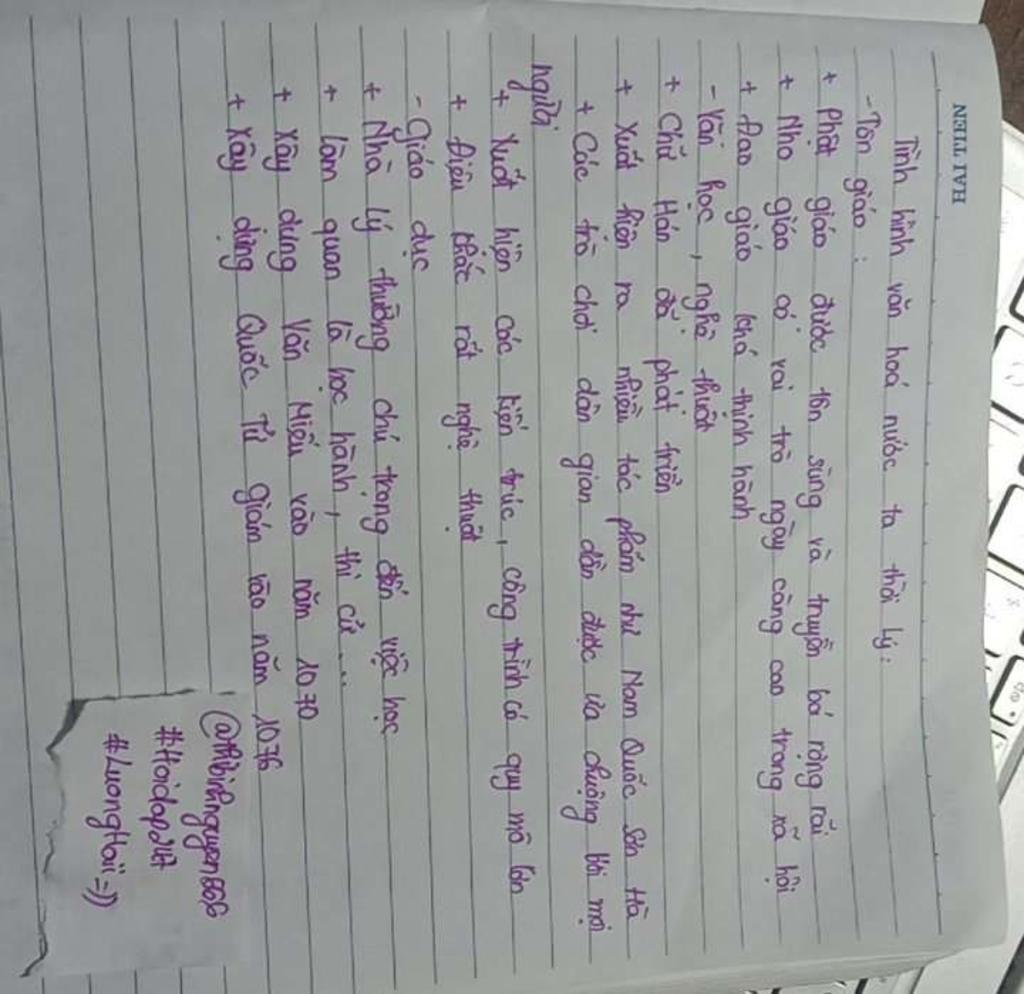 HẢI TIẾN
Tình hình văn hoá nước ta thời Lý:
- Tôn giáo:
+ Phật giáo được tôn sùng và truyền bá rộng rãi
+ Nho giáo có vai trò ngày càng cao trong xã hội
+ Đạo giáo khá thịnh hành
- Văn học, nghệ thuật
+ Chữ Hán đã phát triển
+ Xuất hiện ra nhiều tác phẩm như Nam Quốc Sơn Hà
+ Các trò chơi dân gian dần được ưa chuộng bởi mọi
người
+ Xuất hiện các kiến trúc, công trình có quy mô lớn
+ Điêu khắc rất nghệ thuật
- Giáo dục
+ Nhà Lý thường chú trọng đến việc học
+ Làm quan là học hành, thi cử...
+ Xây dựng Văn Miếu vào năm 1070
+ Xây dựng Quốc Tử giám vào năm 1076
@thibinhnguyen866
#Hoidap247
#LuongHaii=))